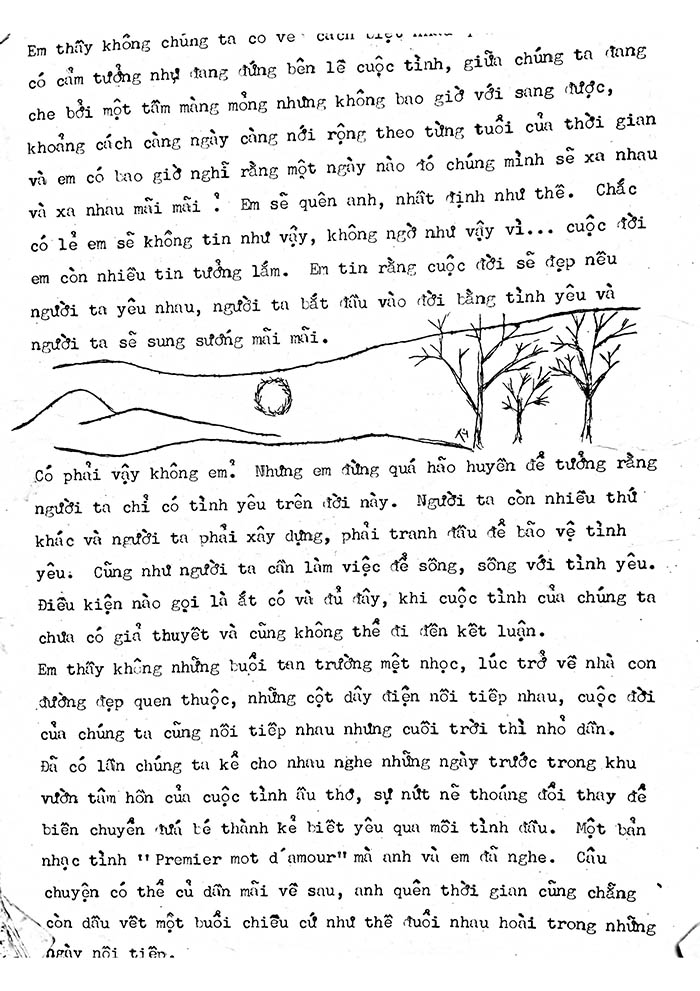 Em thấy không chúng ta có vẻ cách biệt nhau
có cảm tưởng như đang đứng bên lề cuộc tình, giữa chúng ta đang
che bởi một tấm màng mỏng nhưng không bao giờ với sang được,
khoảng cách càng ngày càng nới rộng theo từng tuổi của thời gian
và em có bao giờ nghĩ rằng một ngày nào đó chúng mình sẽ xa nhau
và xa nhau mãi mãi ? Em sẽ quên anh, nhất định như thế. Chắc
có lẻ em sẽ không tin như vậy, không ngờ như vậy vì... cuộc đời
em còn nhiều tin tưởng lắm. Em tin rằng cuộc đời sẽ đẹp nếu
người ta yêu nhau, người ta bắt đầu vào đời bằng tình yêu và
người ta sẽ sung sướng mãi mãi.
Có phải vậy không em? Nhưng em đừng quá hão huyền để tưởng rằng
người ta chỉ có tình yêu trên đời này. Người ta còn nhiều thứ
khác và người ta phải xây dựng, phải tranh đấu để bão vệ tình
yêu. Cũng như người ta cần làm việc để sống, sống với tình yêu.
Điều kiện nào gọi là ắt có và đủ đây, khi cuộc tình của chúng ta
chưa có giả thuyết và cũng không thể đi đến kết luận.
Em thấy không những buổi tan trường mệt nhọc, lúc trở về nhà con
đường đẹp quen thuộc, những cột dây điện nối tiếp nhau, cuộc đời
của chúng ta cũng nối tiếp nhau nhưng cuối trời thì nhỏ dần.
Đã có lần chúng ta kể cho nhau nghe những ngày trước trong khu
vườn tâm hồn của cuộc tình ấu thơ, sự nứt nẽ thoáng đổi thay để
biến chuyển đứa bé thành kẻ biết yêu qua mối tình đầu. Một bản
nhạc tình "Premier mot d'amour" mà anh và em đã nghe. Câu
chuyện có thể củ dần mãi về sau, anh quên thời gian cũng chẵng
còn dấu vết một buổi chiều cứ như thế đuổi nhau hoài trong những
ngày nối tiếp.